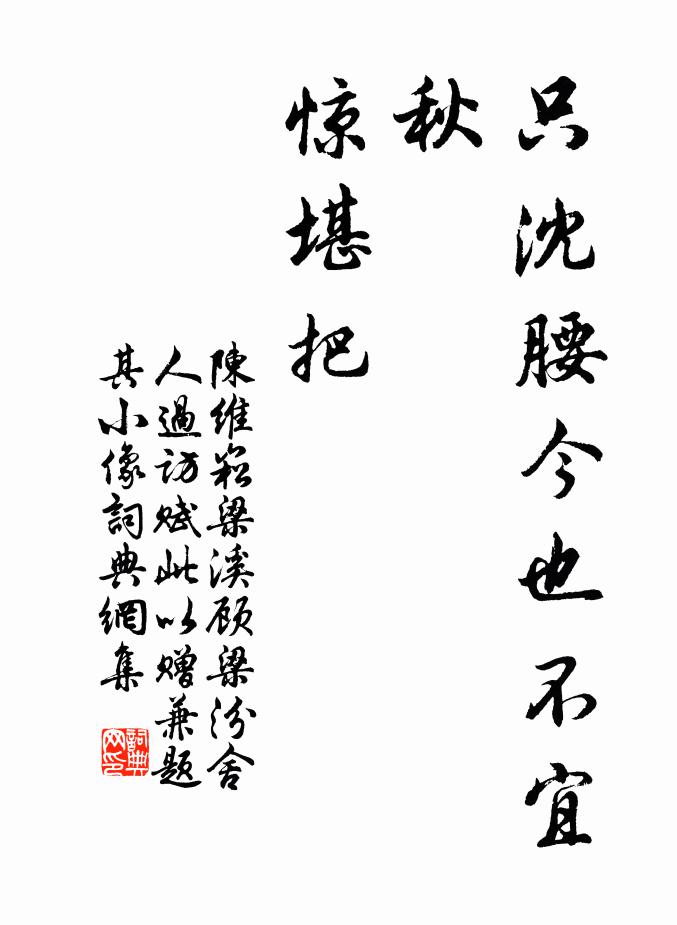 只沈腰今也不宜
秋
惊堪把
陳維崧梁溪顾梁汾舍
人過访赋此以赠兼题
其小像詞典網集
詞典
网印